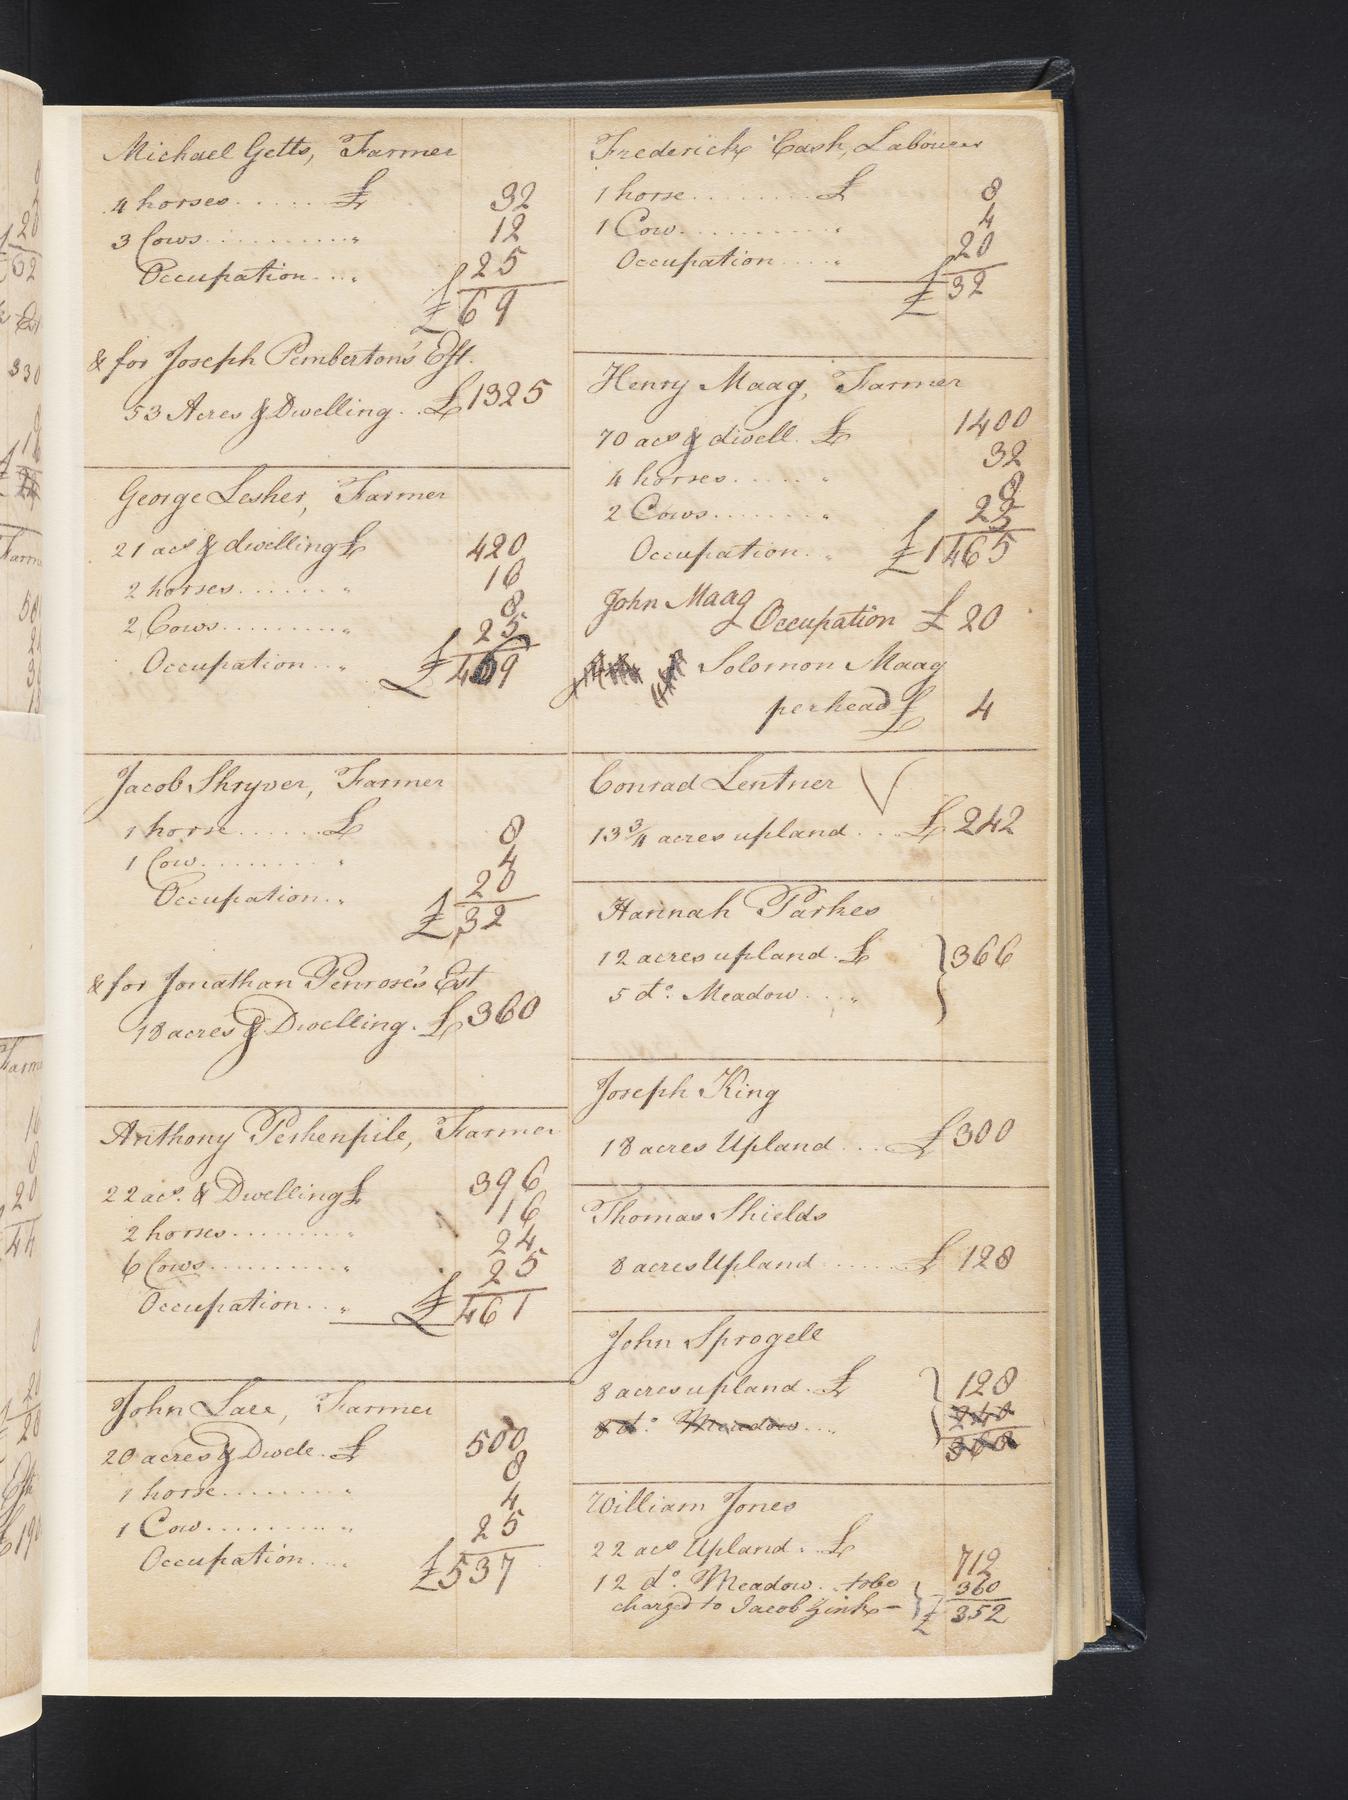 Michael Getts, Farmer
4 horses ...... £ 32
3 Cows ........... " 12
Occupation .... " 25
£ 69
& for Joseph Pemberton's Est.
53 Acres & Dwelling .. £ 1325
George Lesher, Farmer
21 acs & dwelling £ 420
2 horses ....... " 16
2 Cows .......... " 8
Occupation ... " 25
£ 469
Jacob Shryver, Farmer
1 horse ...... £ 8
1 Cow ......... " 4
Occupation .. " 20
£ 32
& for Jonathan Penrose's Est
18 acres & Dwelling . £ 360
Anthony Peshenpile, Farmer
22 acs. & Dwelling £ 396
2 horses ......... " 16
6 Cows .......... " 24
Occupation ... " 25
£ 461
John Lare, Farmer
20 acres & Dwele . £ 500
1 horse ......... " 8
1 Cow .......... " 4
Occupation .... 25
£ 537
Frederick Cash, Labourer
1 horse ......... £ 8
1 Cow .......... " 4
Occupation ..... " 20
£ 32
Henry Maag, Farmer
70 acs & dwell . £ 1400
4 horses ..... " 32
2 Cows ....... " 8
Occupation .. " 25
£ 1465
John Maag
Occupation £ 20
Solomon Maag
perhead £ 4
Conrad Lentner ✓
13 3/4 acres upland ... £ 242
Hannah Parkes
12 acres upland . £ } 366
5 do. Meadow ... "
Joseph King
18 acres Upland ... £ 300
Thomas Shields
8 acres Upland ...... £ 128
John Sprogell
8 acres upland . £ } 128
8 do. Meadow .... 240
368
William Jones
22 acs Upland . £
12 do. Meadow .. to be 712
charged to Jacob Zink - } 360
£ 352